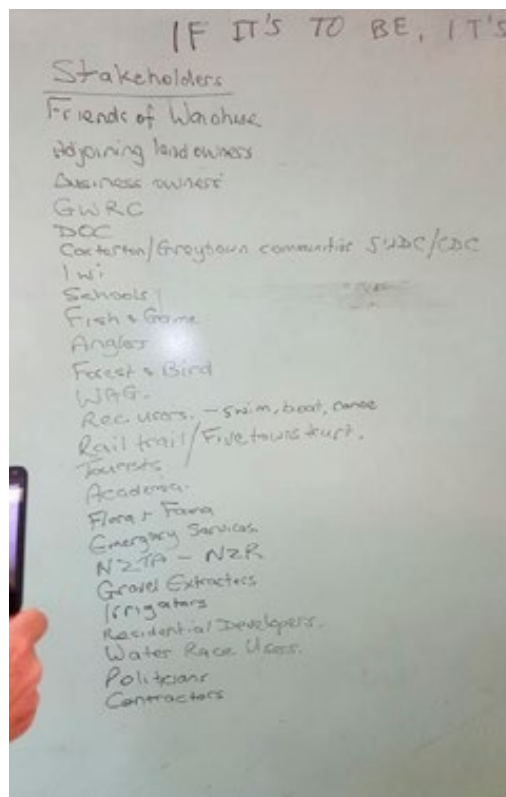 IF IT'S TO BE, IT'S
Stakeholders
Friends of
Adjoining land owners
Business owners
GWRC
DOC
Carterton/Greytown communities SWDC/CDC
Iwi
Schools
Fish & Game
Angler
Forest & Bird
WAG.
Rec. users. - swim, boat, canoe
Rail trail/Five towns trust.
Tourists
Academia.
Flora + Fauna
Emergency Services.
NZTA - NZR
Gravel Extractors
Irrigators
Residential Developers.
Water Race Users.
Politicians
Contractors